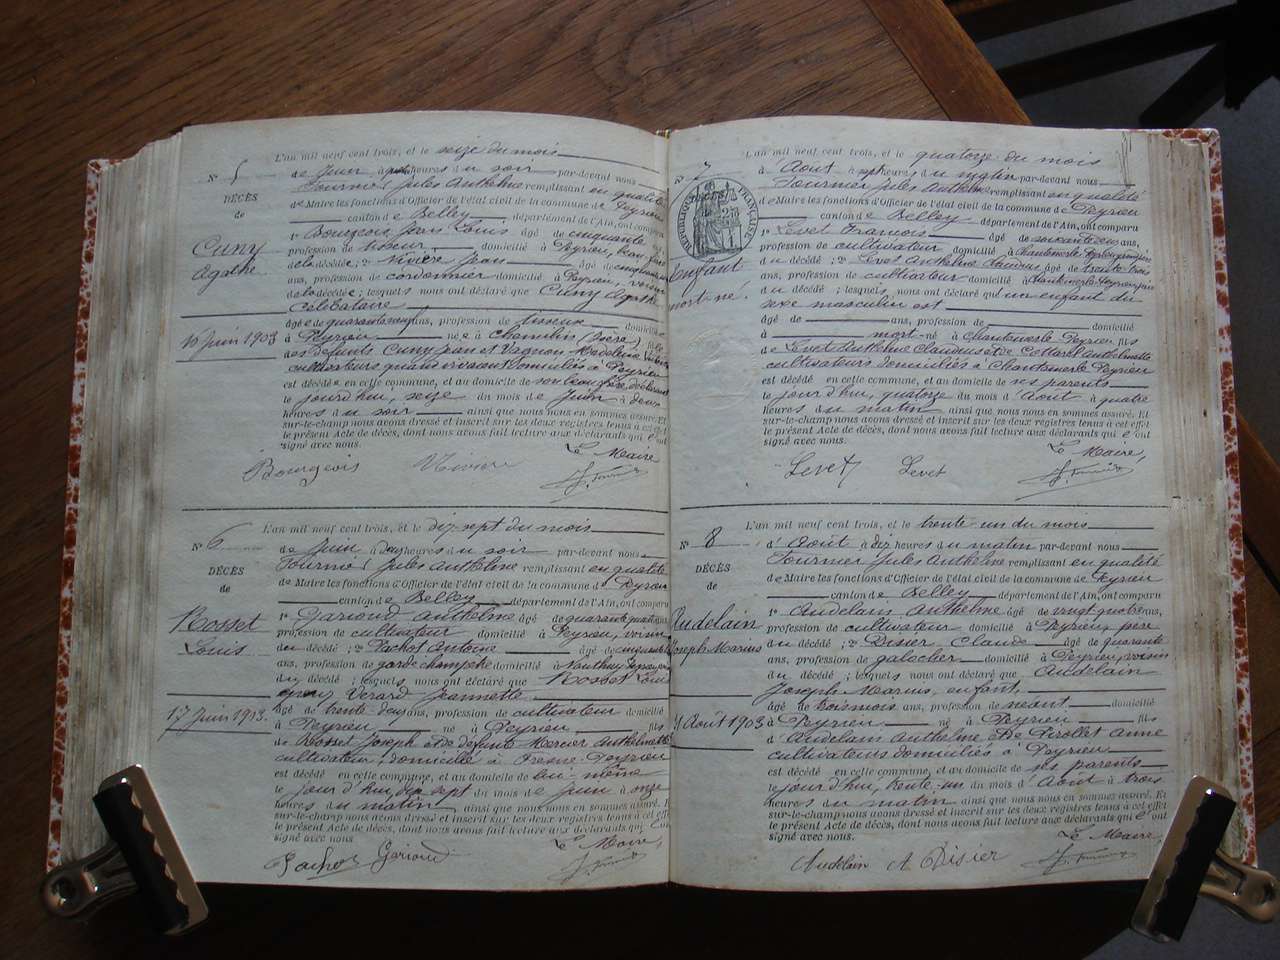 L'an mil neuf cent trois, et le seize du mois
N° 5 de Juin, à heures du soir par-devant nous
DÉCÈS Fournier Jules Anthelme remplissant en qualité
de de Maire les fonctions d'Officier de l'état civil de la commune de Peyrieu
canton de Belley département de l'Ain, ont comparu
Cuny 1° Bourgeois Jean Louis âgé de cinquante
Agathe profession de tisseur domicilié à Peyrieu, beau frère
de la décédée; 2° Vivière Jean âgé de cinquante
ans, profession de cordonnier domicilié à Peyrieu, voisin
de la décédée; lesquels nous ont déclaré que Cuny Agathe
Célibataire
âgée de quarante neuf ans, profession de tisseuse domiciliée
16 Juin 1903 à Peyrieu née à (Isère) fille
des défunts Cuny Jean et Vagnon Madeleine
cultivateurs quand vivaient domiciliés à Peyrieu
est décédée en cette commune, et au domicile de son beau frère, déclarant
le jourd'hui, seize du mois de Juin à deux
heures du soir ainsi que nous nous en sommes assuré. Et
sur-le-champ nous avons dressé et inscrit sur les deux registres tenus à cet effet
le présent Acte de décès, dont nous avons fait lecture aux déclarants qui l'ont
signé avec nous.
Le Maire
Bourgeois Vivière J. Fournier
L'an mil neuf cent trois, et le dix-sept du mois
N° 6 de Juin, à heures du soir par-devant nous
DÉCÈS Fournier Jules Anthelme remplissant en qualité
de de Maire les fonctions d'Officier de l'état civil de la commune de Peyrieu
canton de Belley département de l'Ain, ont comparu
Rosset 1° Garioud Anthelme âgé de quarante quatre ans,
Louis profession de cultivateur domicilié à Peyrieu, voisin
du décédé; 2° Pachot Antoine âgé de cinquante
ans, profession de garde champêtre domicilié à
du décédé; lesquels nous ont déclaré que Rosset Louis
époux Verard Jeannette
âgé de trente-deux ans, profession de cultivateur domicilié
17 Juin 1903. à Peyrieu né à Peyrieu fils
de Rosset Joseph et de défunte Mercier Anthelmette
cultivateur, domicilié à Peyrieu
est décédé en cette commune, et au domicile de lui-même
le jourd'hui, dix-sept du mois de Juin à onze
heures du matin ainsi que nous nous en sommes assuré. Et
sur-le-champ nous avons dressé et inscrit sur les deux registres tenus à cet effet
le présent Acte de décès, dont nous avons fait lecture aux déclarants qui l'ont
signé avec nous.
Le Maire,
Pachot Garioud J. Fournier
L'an mil neuf cent trois, et le quatorze du mois
N° 7 d'Août, à heures du matin par-devant nous
Fournier Jules Anthelme remplissant en qualité
de Maire les fonctions d'Officier de l'état civil de la commune de Peyrieu
RÉPUBLIQUE FRANÇAISE
canton de Belley département de l'Ain, ont comparu
1° Levet François âgé de soixante ans,
profession de cultivateur domicilié à Chantemerle Peyrieu
Enfant du décédé; 2° Levet Anthelme Claudius âgé de trente trois
ans, profession de cultivateur domicilié à Chantemerle Peyrieu
mort-né. du décédé; lesquels nous ont déclaré qu'un enfant du
sexe masculin est
âgé de ans, profession de domicilié
à mort-né à Chantemerle Peyrieu fils
de Levet Anthelme Claudius et de Cottarel Anthelmette
cultivateurs domiciliés à Chantemerle Peyrieu
est décédé en cette commune, et au domicile de ses parents
le jourd'hui, quatorze du mois d'Août à quatre
heures du matin ainsi que nous nous en sommes assuré. Et
sur-le-champ nous avons dressé et inscrit sur les deux registres tenus à cet effet
le présent Acte de décès, dont nous avons fait lecture aux déclarants qui l'ont
signé avec nous.
Le Maire,
Levet Levet J. Fournier
L'an mil neuf cent trois, et le trente-un du mois
N° 8 d'Août à dix heures du matin par-devant nous
DÉCÈS Fournier Jules Anthelme remplissant en qualité
de de Maire les fonctions d'Officier de l'état civil de la commune de Peyrieu
canton de Belley département de l'Ain, ont comparu
Audelain 1° Audelain Anthelme âgé de vingt quatre ans,
Joseph Marius profession de cultivateur domicilié à Peyrieu, père
du décédé; 2° Disier Claude âgé de quarante
ans, profession de galocher domicilié à Peyrieu, voisin
du décédé; lesquels nous ont déclaré que Audelain
Joseph Marius, enfant,
âgé de trois mois ans, profession de néant domicilié
31 Août 1903 à Peyrieu né à Peyrieu fils
d'Audelain Anthelme et de Pirollet Anne
cultivateurs domiciliés à Peyrieu
est décédé en cette commune, et au domicile de ses parents
le jourd'hui, trente-un du mois d'Août à trois
heures du matin ainsi que nous nous en sommes assuré. Et
sur-le-champ nous avons dressé et inscrit sur les deux registres tenus à cet effet
le présent Acte de décès, dont nous avons fait lecture aux déclarants qui l'ont
signé avec nous.
Le Maire,
Audelain A Disier J. Fournier